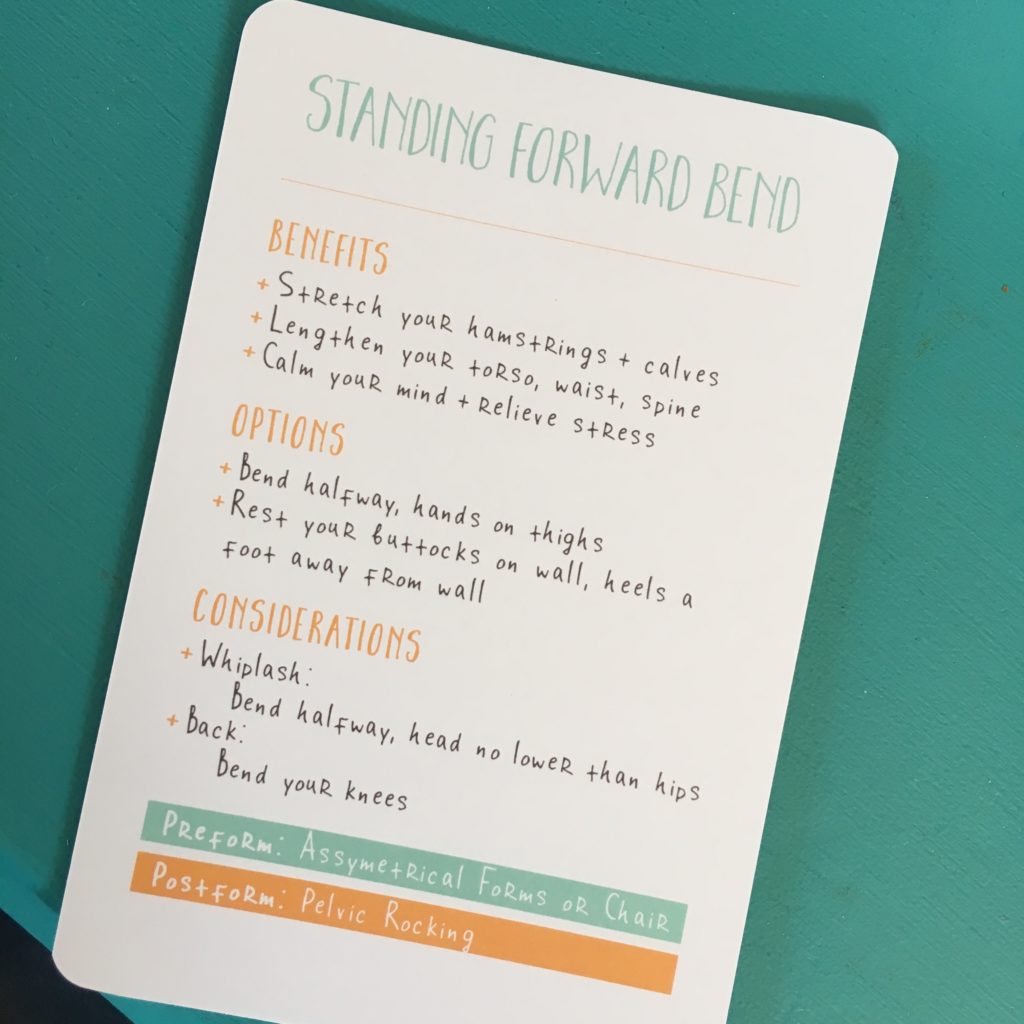 STANDING FORWARD BEND
BENEFITS
+ Stretch your hamstrings + calves
+ Lengthen your torso, waist, spine
+ Calm your mind + relieve stress
OPTIONS
+ Bend halfway, hands on thighs
+ Rest your buttocks on wall, heels a
foot away from wall
CONSIDERATIONS
+ Whiplash:
Bend halfway, head no lower than hips
+ Back:
Bend your knees
Preform: Assymetrical Forms or Chair
Postform: Pelvic Rocking